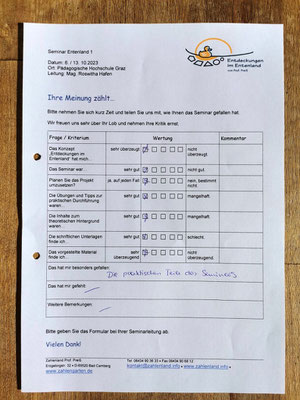 Seminar Entenland 1
Datum: 6. / 13. 10.2023
Ort: Pädagogische Hochschule Graz
Leitung: Mag. Roswitha Hafen
Entdeckungen
im Entenland
von Prof. Preiß
Ihre Meinung zählt...
Bitte nehmen Sie sich kurz Zeit und teilen Sie uns mit, wie Ihnen das Seminar gefallen hat.
Wir freuen uns sehr über Ihr Lob und nehmen Ihre Kritik ernst.
Frage / Kriterium Wertung Kommentar
Das Konzept „Entdeckungen im Entenland“ hat mich... sehr überzeugt nicht überzeugt.
Das Seminar war... sehr gut nicht gut.
Planen Sie das Projekt umzusetzen? ja, auf jeden Fall nein, bestimmt nicht.
Die Übungen und Tipps zur praktischen Durchführung waren... sehr gut mangelhaft.
Die Inhalte zum theoretischen Hintergrund waren... sehr gut mangelhaft.
Die schriftlichen Unterlagen finde ich... sehr gut schlecht.
Das vorgestellte Material finde ich... sehr überzeugend nicht überzeugend.
Das hat mir besonders gefallen:
Die praktischen Teile des Seminars
Das hat mir gefehlt:
Weitere Bemerkungen:
Bitte geben Sie das Formular bei Ihrer Seminarleitung ab.
Vielen Dank!
Zahlenland Prof. Preiß
www.zahlengarten.de
kontakt@zahlenland.info • www.zahlenland.info •